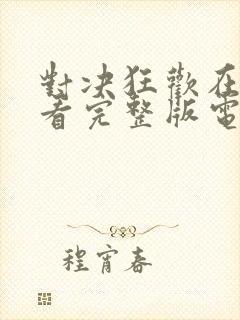 對决狂歡在
看完整版電
程宵春